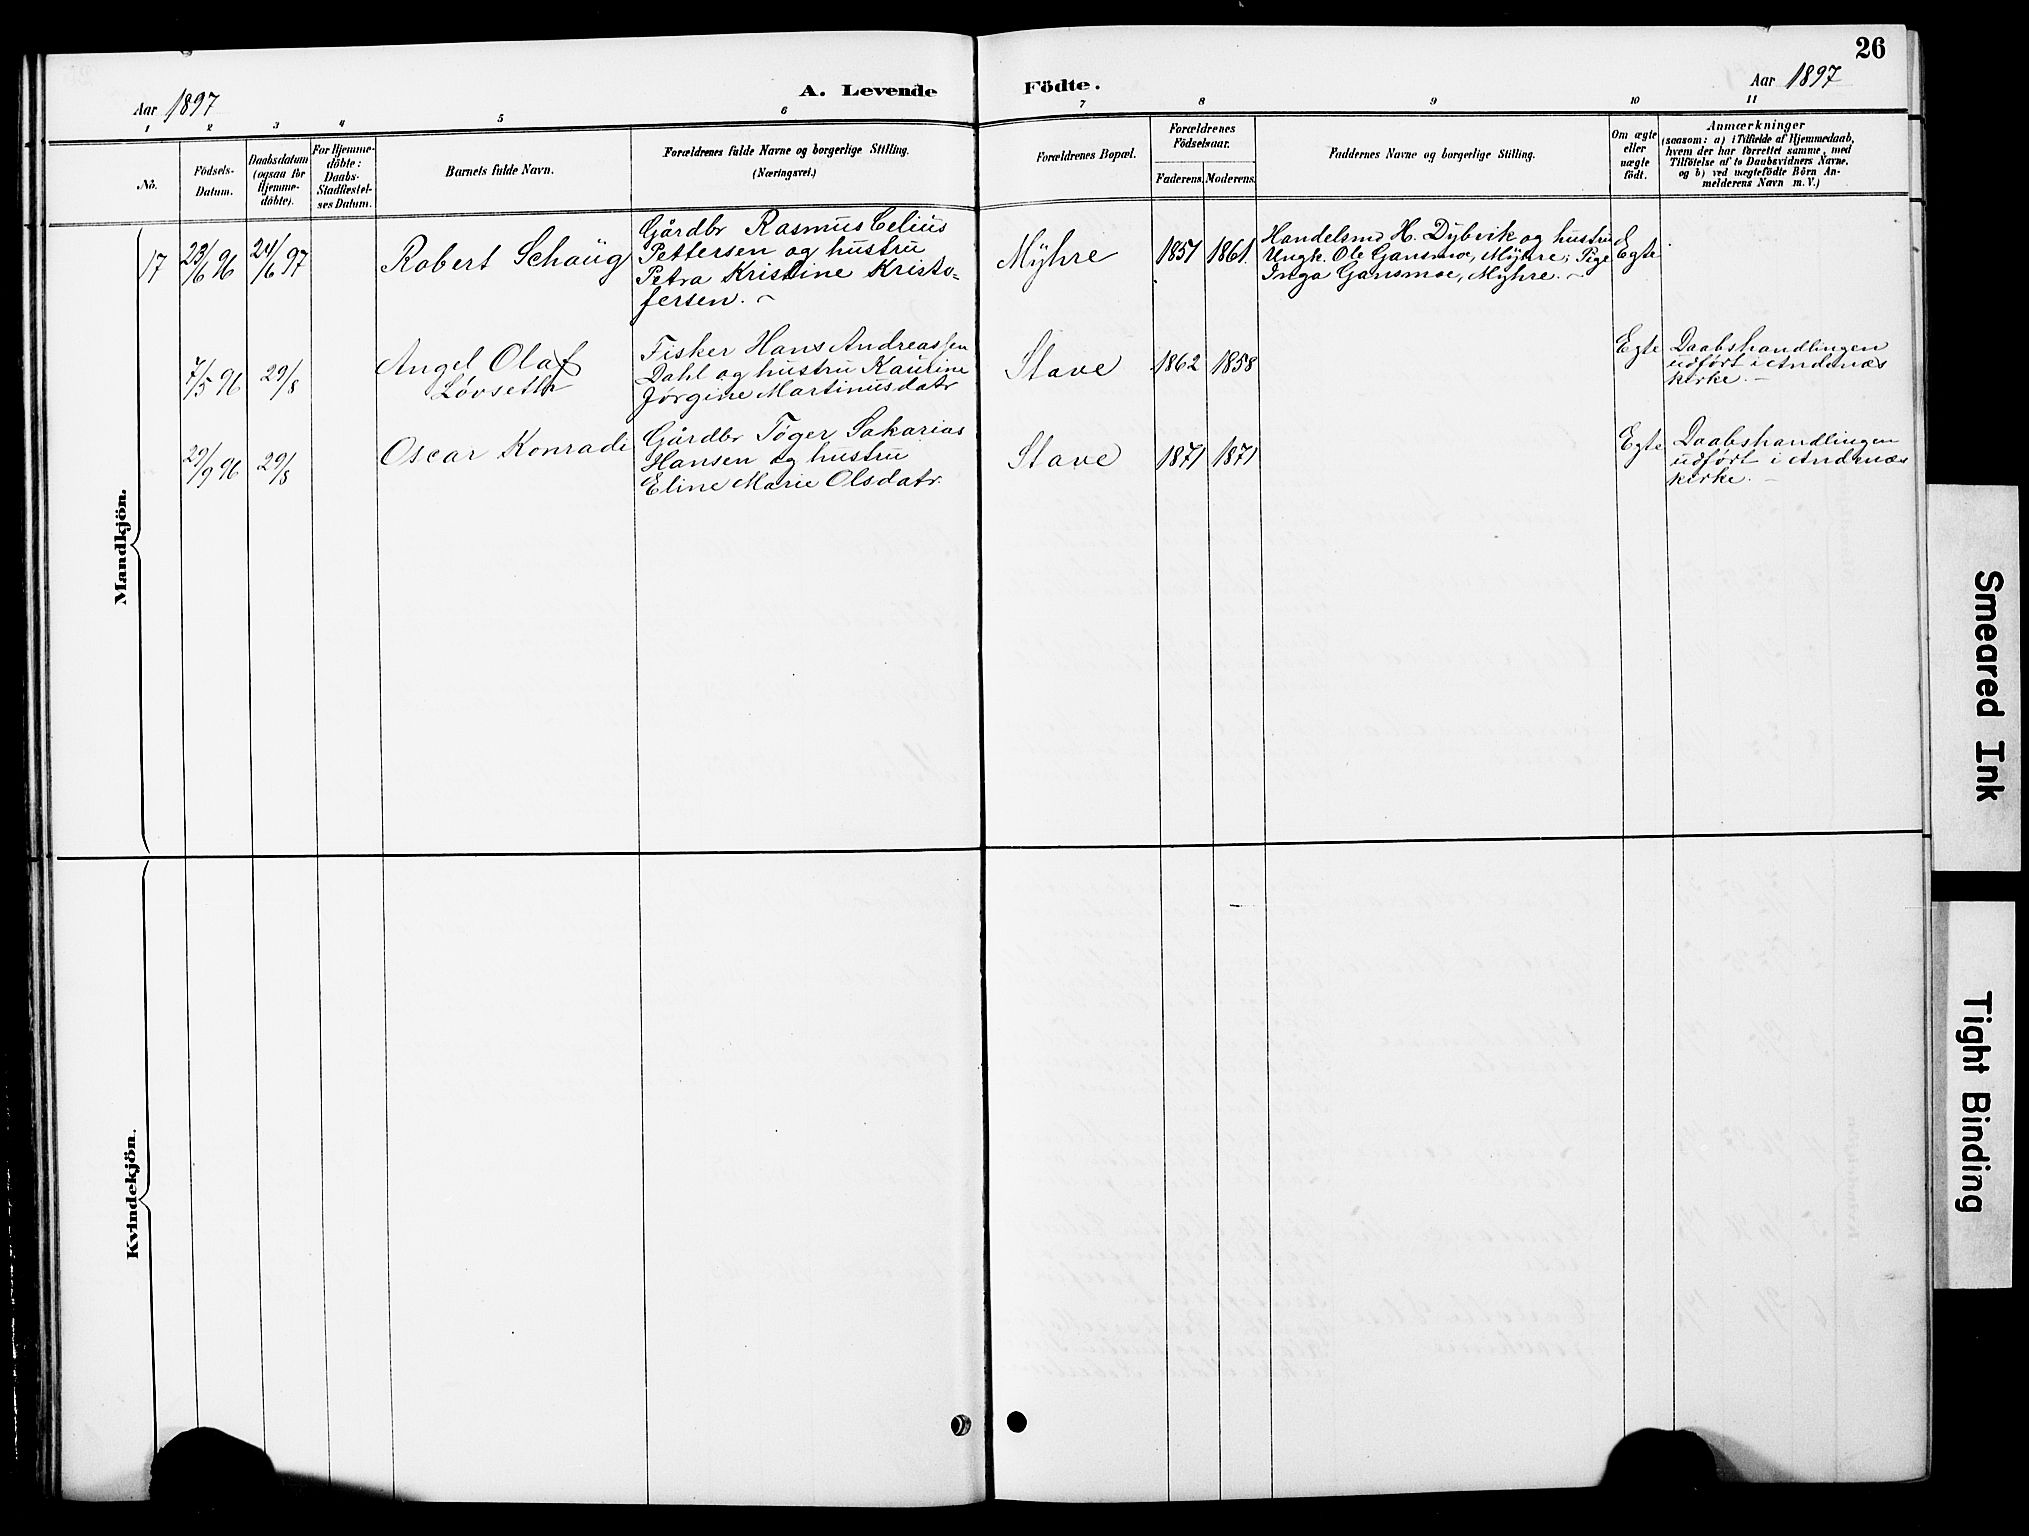 26
Aar 1897
A. Levende
Födte.
Aar 1897
1 2 3 4 5 6 7 8 9 10 11
No.
Födsels-
Datum.
Daabsdatum
(ogsaa for
Hjemme-
döbte).
For Hjemme-
döbte:
Daabs-
Stadfæstel-
ses Datum.
Barnets fulde Navn.
Forældrenes fulde Navne og borgerlige Stilling.
(Næringsvei.)
Forældrenes Bopæl.
Forældrenes
Födselsaar.
Faderens.
Moderens.
Faddernes Navne og borgerlige Stilling.
Om ægte
eller
uægte
födt.
Anmærkninger
(saasom: a) i Tilfælde af Hjemmedaab,
hvem der har forrettet samme, med
Tilföielse af to Daabsvidners Navne,
og b) ved uægtefödte Börn An-
melderens Navn m. V.)
Mandkjön.
17
23/6 96
24/6 97
Robert Schaüg
Gårdbr Rasmus Celius
Pettersen og hustru
Petra Kristine Kristo-
fersen.
Mÿhre
1851
1861
Handelsmd H. Dÿbvik og hustru
Ungk. Ole Gansmoe, Mÿhre; Pige
Inga Gansmoe, Myhre.
Egte
7/5 96
29/8
Angel Olaf
Lövseth
Fisker Hans Andreassen
Dahl og hustru Kaurine
Jörgine Martinusdatr
Stave
1862
1858
Egte
Daabshandlingen
udfört i Andenæs
kirke.
29/9 96
29/8
Oscar Konradi
Gårdbr Töger Sakarias
Hansen og hustru
Eline Marie Olsdatr.
Stave
1871
1871
Egte
Daabshandlingen
udfört i Andenæs
kirke.
Kvindekjön.
Smeared Ink
Tight Binding